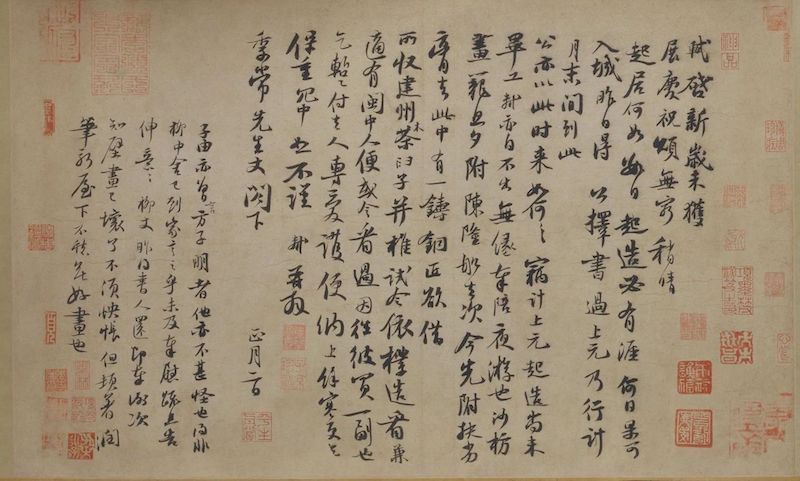 軾啓新歲未獲
展慶祝頌無窮稍晴
起居何如數日起造必有涯何日果可
入城昨日得公擇書過上元乃行計
月末間到此
公亦以此時來如何〻竊計上元起造尚未
畢工軾亦自不出無緣奉陪夜游也沙枋
畫籠旦夕附陳隆船去次今先附扶劣
膏去此中有一鑄銅匠欲借
所收建州木茶臼子并椎試令依樣造看兼
適有閩中人便或令看過因往彼買一副也
乞暫付去人專愛護便納上餘寒更乞
保重冗中恕不謹軾再拜
季常先生丈閤下
正月二日
子由亦曾言方子明者他亦不甚怪也得非
柳中舍已到家言之乎未及奉慰疏且告
伸意〻柳丈昨得書人還即奉謝次
知壁畫已壞了不須怏悵但頓著潤
筆新屋下不愁無好畫也